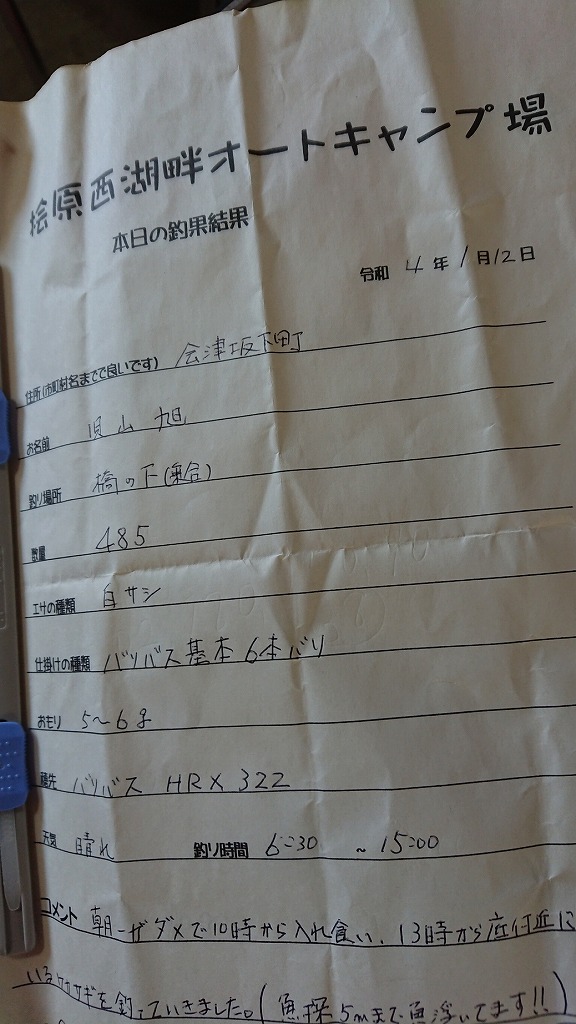 桧原西湖畔オートキャンプ場
本日の釣果結果
令和 4 年 1 月 12 日
住所(市町村名までで良いです) 会津坂下町
お名前 児山 旭
釣り場所 橋の下(乗合)
数量 485
エサの種類 白サシ
仕掛けの種類 バリバス基本 6本バリ
おもり 5〜6g
穂先 バリバス HRX 322
天気 晴れ 釣り時間 6:30 ~ 15:00
コメント 朝一がダメで10時から入れ食い、13時から底付近に
いるワカサギを釣っていきました。(魚探5mまで魚浮いてます!!)